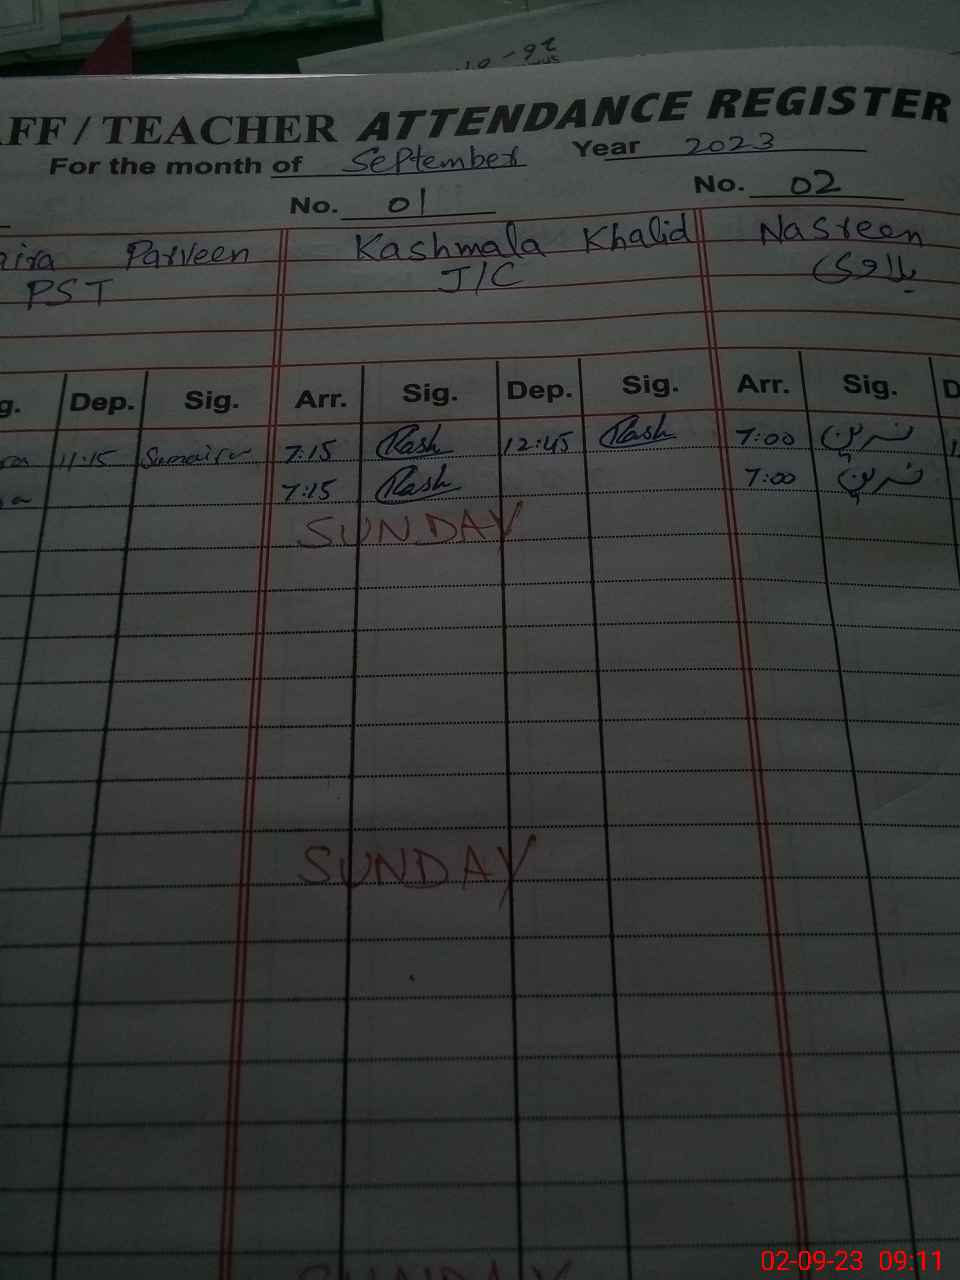 AFF / TEACHER ATTENDANCE REGISTER
For the month of September Year 2023
No. 01 No. 02
Parveen Kashmala Khalid Nasreen
PST J/C بلاوی
g. Dep. Sig. Arr. Sig. Dep. Sig. Arr. Sig. D
11:15 Sumaira 7:15 Kash 12:45 Kash 7:00 نسرین
7:15 Kash 7:00 نسرین
SUNDAY
SUNDAY
SUNDAY
02-09-23 09:11